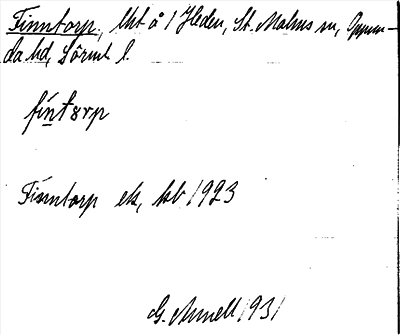 Finntorp, lht å 1 Heden, St. Malms sn, Oppun-
da hd, Sörml l.
fíntɷrp
Finntorp ek, kb 1923
G. Arnell 1931